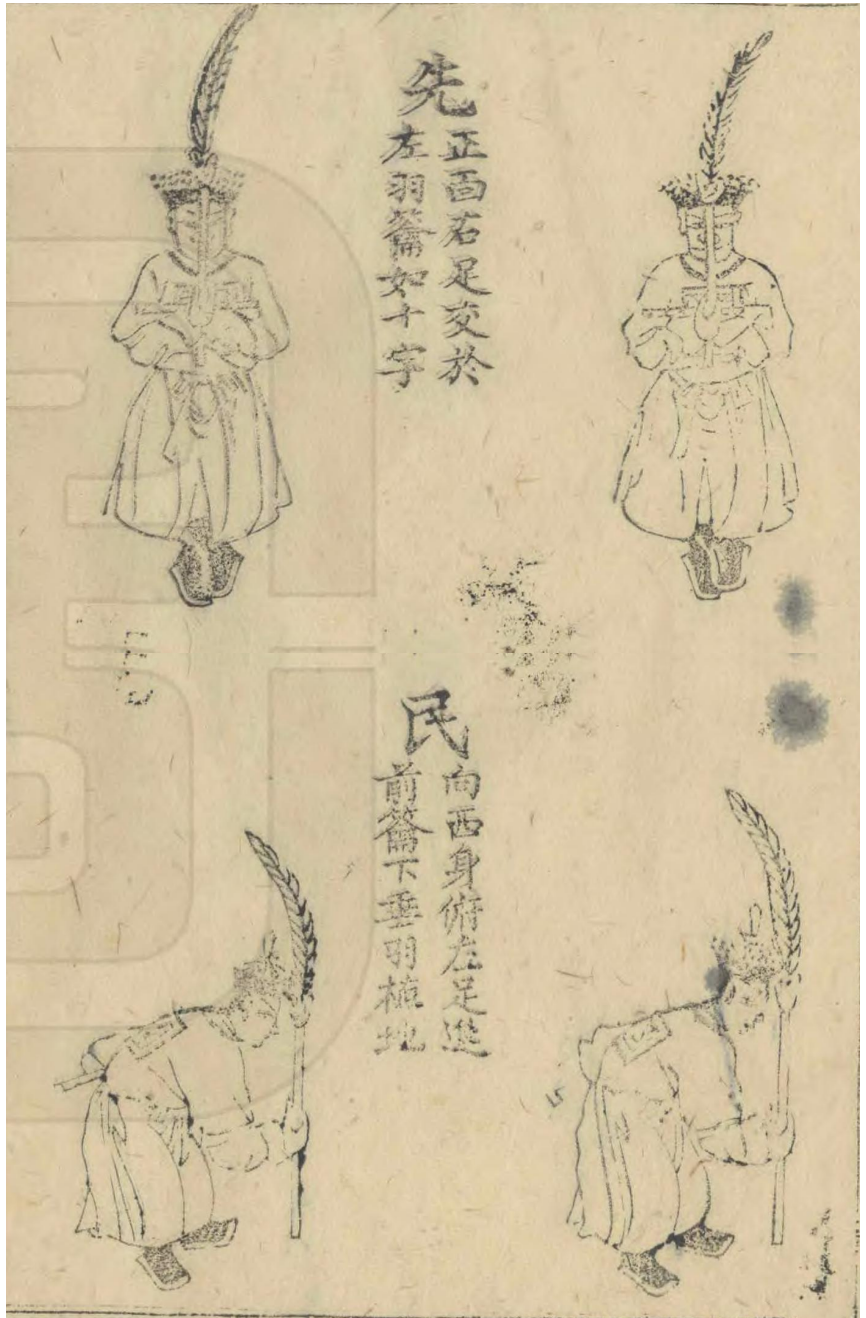 先
正面右足交於
左羽籥如十字
民
向西身俯左足進
前籥下垂羽植地